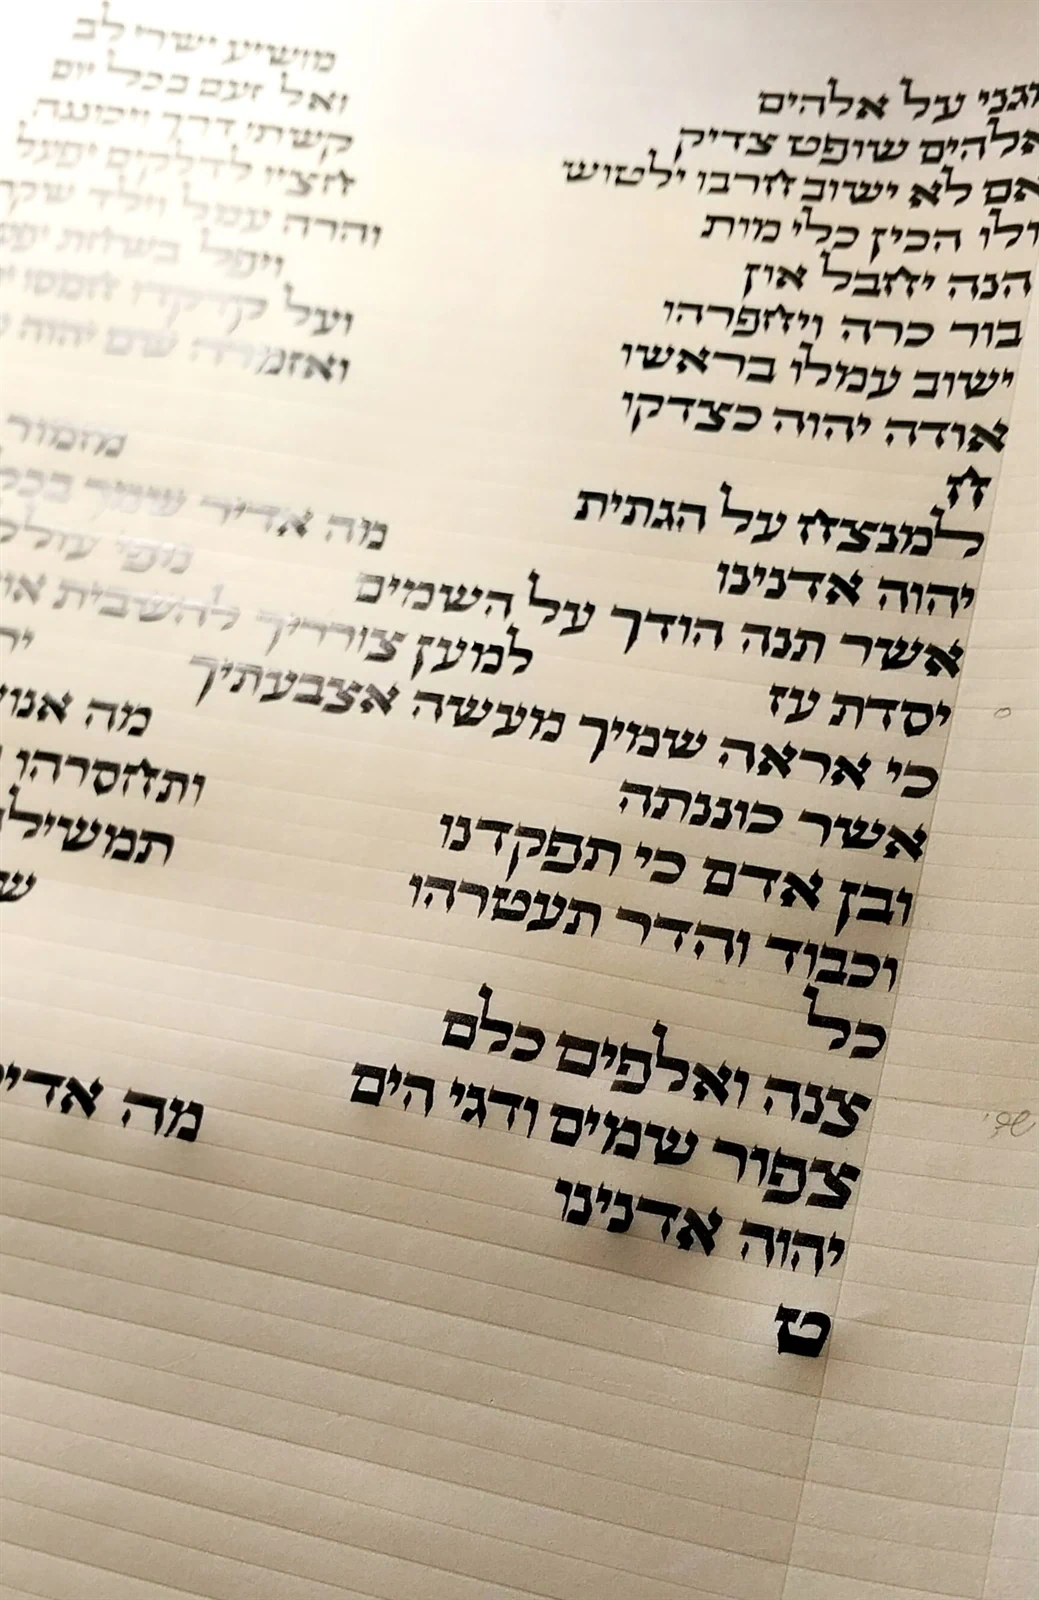 מגני על אלהים מושיע ישרי לב
אלהים שופט צדיק ואל זעם בכל יום
אם לא ישוב חרבו ילטוש קשתו דרך ויכוננה
ולו הכין כלי מות חציו לדלקים יפעל
הנה יחבל און והרה עמל וילד שקר
בור כרה ויחפרהו ויפל בשחת יפעל
ישוב עמלו בראשו ועל קדקדו חמסו
אודה יהוה כצדקו ואזמרה שם יהוה
ח
למנצח על הגתית מזמור
יהוה אדנינו מה אדיר שמך בכל
אשר תנה הודך על השמים מפי עוללים
יסדת עז למען צורריך להשבית
כי אראה שמיך מעשה אצבעתיך
אשר כוננתה מה אנוש
ובן אדם כי תפקדנו ותחסרהו
וכבוד והדר תעטרהו
כל
צנה ואלפים כלם
צפור שמים ודגי הים
יהוה אדנינו מה אדיר
ט